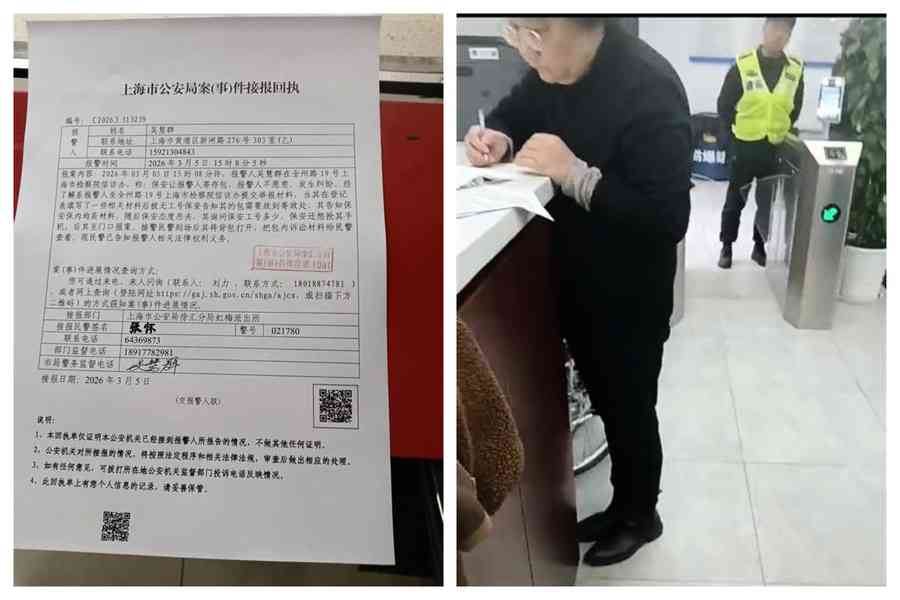 上海市公安局案(事)件接报回执
编号: [2026] 113239
报警人
姓名 吴慧群
联系地址 上海市黄浦区新闸路276号303室(乙)
联系电话 15921304843
报警时间 2026年3月5日15时8分5秒
报案内容: 2026年03月05日15时08分许, 报警人吴慧群在金州路19号上
海市检察院信访办, 称: 保安让报警人寄存包, 报警人不愿意, 发生纠纷。经
了解系报警人至金州路19号上海市检察院信访办提交举报材料, 当其在登记
表填写了一份相关材料后被无工号保安告知其的包需要放到寄放处, 其告知保
安包内均系材料, 随后保安态度恶劣, 其询问保安工号多少, 保安还想抢其手
机, 后其至门口报案。接警民警到场后其将背包打开, 把包内诉讼材料给民警
查看。现民警已告知报警人相关法律权利义务。
案(事)件进展情况查询方式:
您可通过来电、来人问询 (联系人: 刘力 , 联系方式: 18018874781 )
, 或者网上查询 (登陆网址https://gaj.sh.gov.cn/shga/ajcx, 或扫描下方
二维码) 的方式获知案(事)件进展情况。
接报部门 上海市公安局徐汇分局虹梅派出所
接报民警签名 张怀 警号 021780
联系电话 64369873
部门监督电话 18917782981
市局警务监督电话
接报日期: 2026年3月5日
(交报警人联)
说明:
1、本回执单仅证明本公安机关已经接到报警人所报告的情况, 不做其他任何证明。
2、公安机关对所接报的情况, 将按照法定程序和相关法律法规, 审查后做出相应的处理。
3、如有任何意见, 可拨打所在地公安机关监督部门投诉电话反映情况。
4、此回执单上有您个人信息的记录, 请妥善保管。
防爆